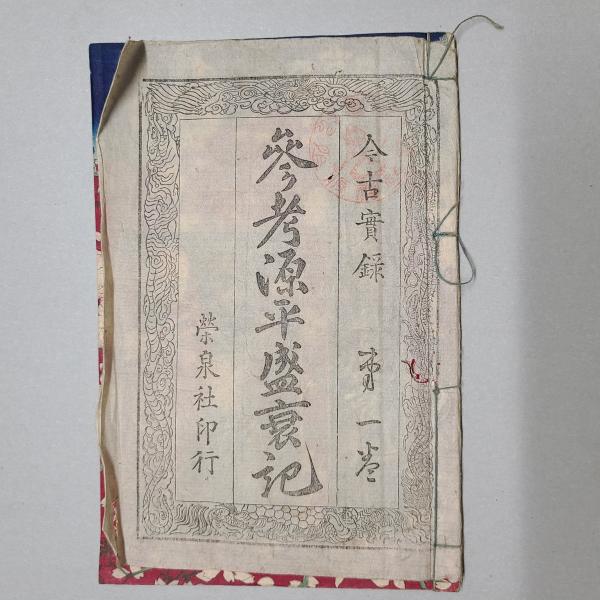 今古實録 第一卷
參考源平盛衰記
榮泉社印行